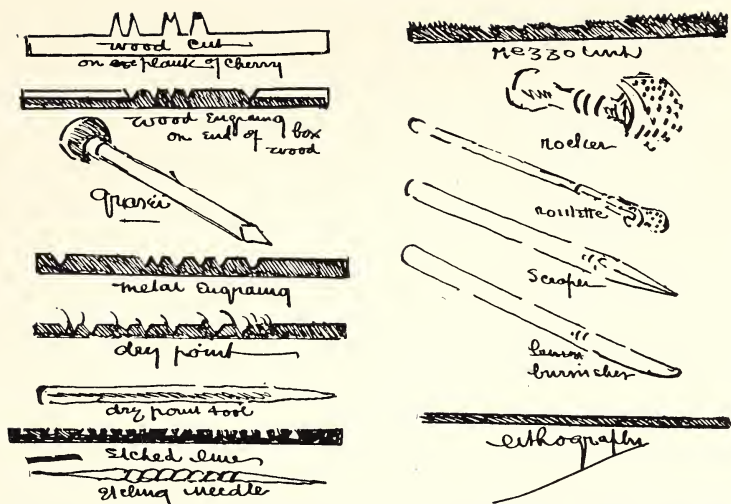 wood cut
on plank of cherry
wood Engraving
on End of box
wood
graver
metal Engraving
dry point
dry point tool
Etched line
Etching needle
mezzotint
rocker
roulette
Scraper
burnisher
lithography